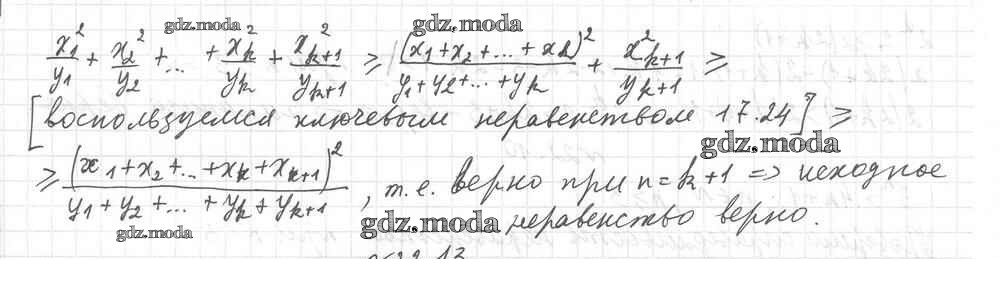 gdz.moda gdz.moda
x₁²/y₁ + x₂²/y₂ + ... + x_k²/y_k + x²_{k+1}/y_{k+1} ≥ (x₁+x₂+...+x_k)²/(y₁+y₂+...+y_k) + x²_{k+1}/y_{k+1} ≥
[воспользуемся ключевым неравенством 17.24] ≥
gdz.moda
≥ (x₁+x₂+...+x_k+x_{k+1})²/(y₁+y₂+...+y_k+y_{k+1}), т.е. верно при n=k+1 => исходное
gdz.moda неравенство верно.
gdz.moda